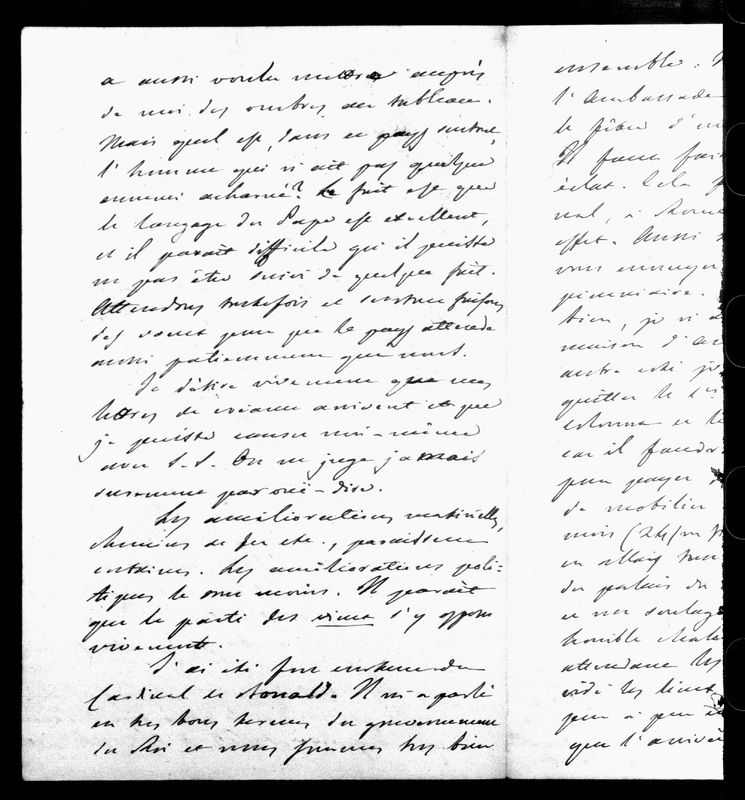 a aussi voulu mettre auprès
de moi des ombres au tableau.
Mais quel est, dans ce pays surtout,
l'homme qui n'ait pas quelque
ennemi acharné? Le fait est que
le langage du Pape est excellent,
et il paraît difficile qu'il puisse
ne pas être suivi de quelque fait.
Attendons toutefois et surtout faisons
des vœux pour que le pays attende
aussi patiemment que nous.
Je désire vivement que mes
lettres de créance arrivent et que
je puisse causer moi-même
avec S.S. On ne juge jamais
surement par ouï-dire.
Les améliorations matérielles,
chemins de fer etc., paraissent
certaines. Les améliorations poli-
tiques le sont moins. Il paraît
que le parti des vieux s'y oppose
vivement.
J'ai été fort content du
Cardinal de Bonald. Il m'a parlé
en très bons termes du gouvernement
du Roi et nous sommes très bien
ensemble.
l'Ambassade
Il faut fai
éclat. Cela
nal, à Rome
effet. Aussi
vous envoyer
pécuniaire.
bien, je n'ai
maison d'a
autre été
quitter le
Colonna et
car il faudr
pour payer
de mobilier
mois
en Mai
du palais du
et me soulag
horrible
attendant les
vidé les lieux
peu à peu
que l'arrivé